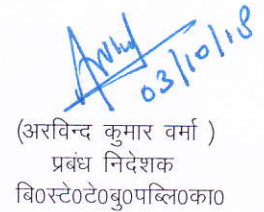 03/10/18
(अरविन्द कुमार वर्मा )
प्रबंध निदेशक
बि०स्टे०टे०बु०पब्लि०का०